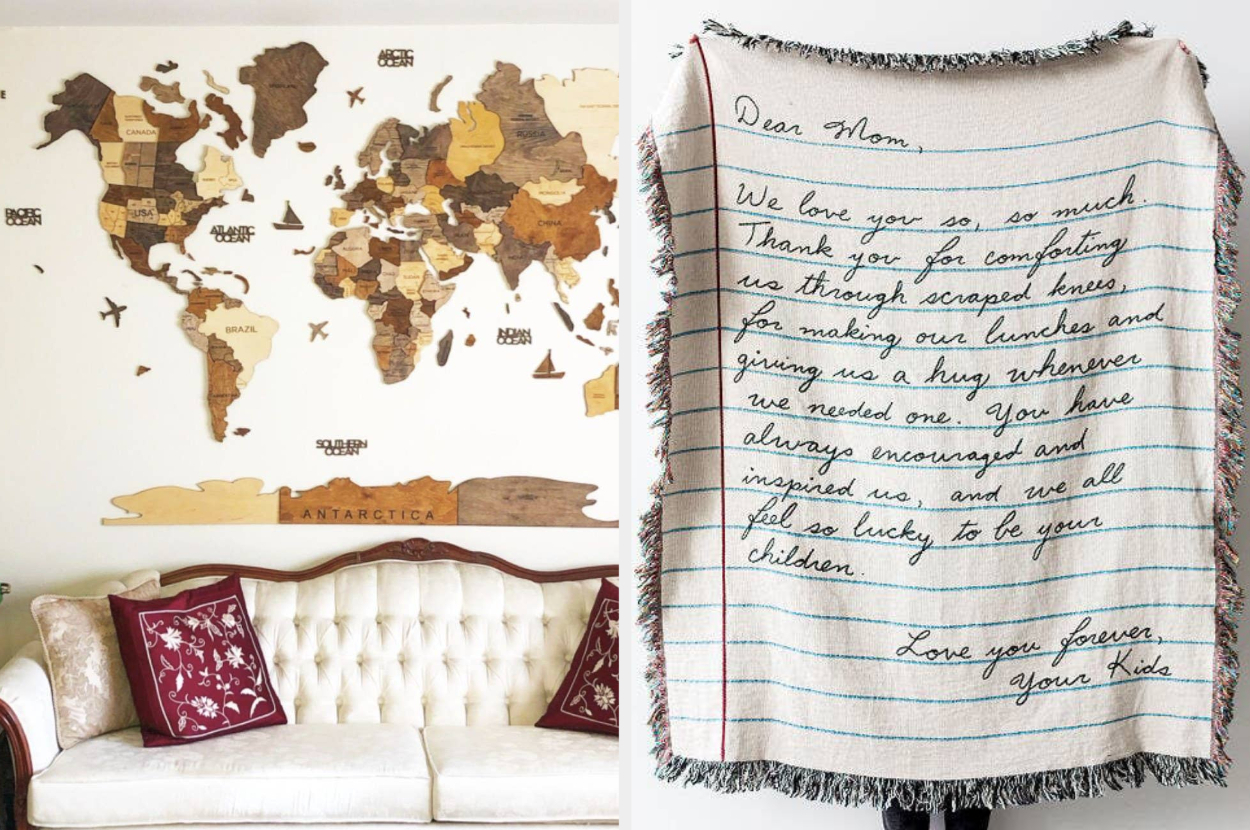 ARCTIC
OCEAN
CANADA
RUSSIA
USA
PACIFIC
OCEAN
ATLANTIC
OCEAN
MONGOLIA
CHINA
BRAZIL
INDIAN
OCEAN
SOUTHERN
OCEAN
ANTARCTICA
Dear Mom,
We love you so, so much.
Thank you for comforting
us through scraped knees,
for making our lunches and
giving us a hug whenever
we needed one. You have
always encouraged and
inspired us, and we all
feel so lucky to be your
children.
Love you forever,
Your Kids